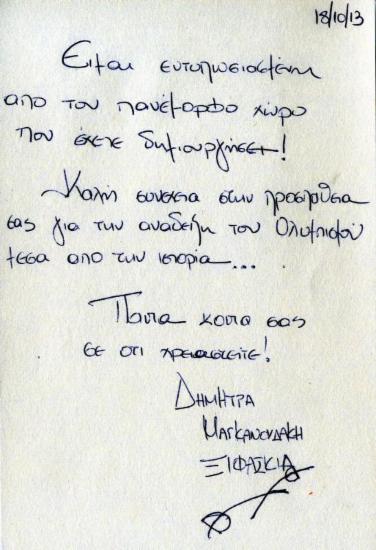 18/10/13
Ειμαι εντυπωσιασμένη
απο τον πανέμορφο χώρο
που έχετε δημιουργήσει!
Καλή συνέχεια στην προσπάθεια
σας για την αναδειξη του Ολυμπισμού
μεσα από την ιστορία...
Παντα κοντα σας
σε οτι χρειαστειτε!
ΔΗΜΗΤΡΑ
ΜΑΓΚΑΝΟΥΔΑΚΗ
ΞΙΦΑΣΚΙΑ